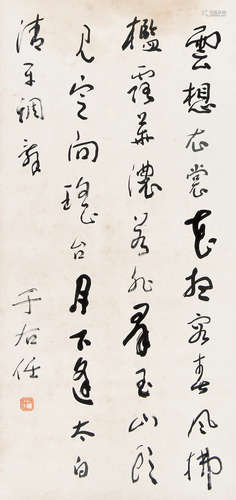 雲想衣裳花想容春風拂
檻露華濃若非群玉山頭
見定向瑤台月下逢太白
清平調辭
于右任